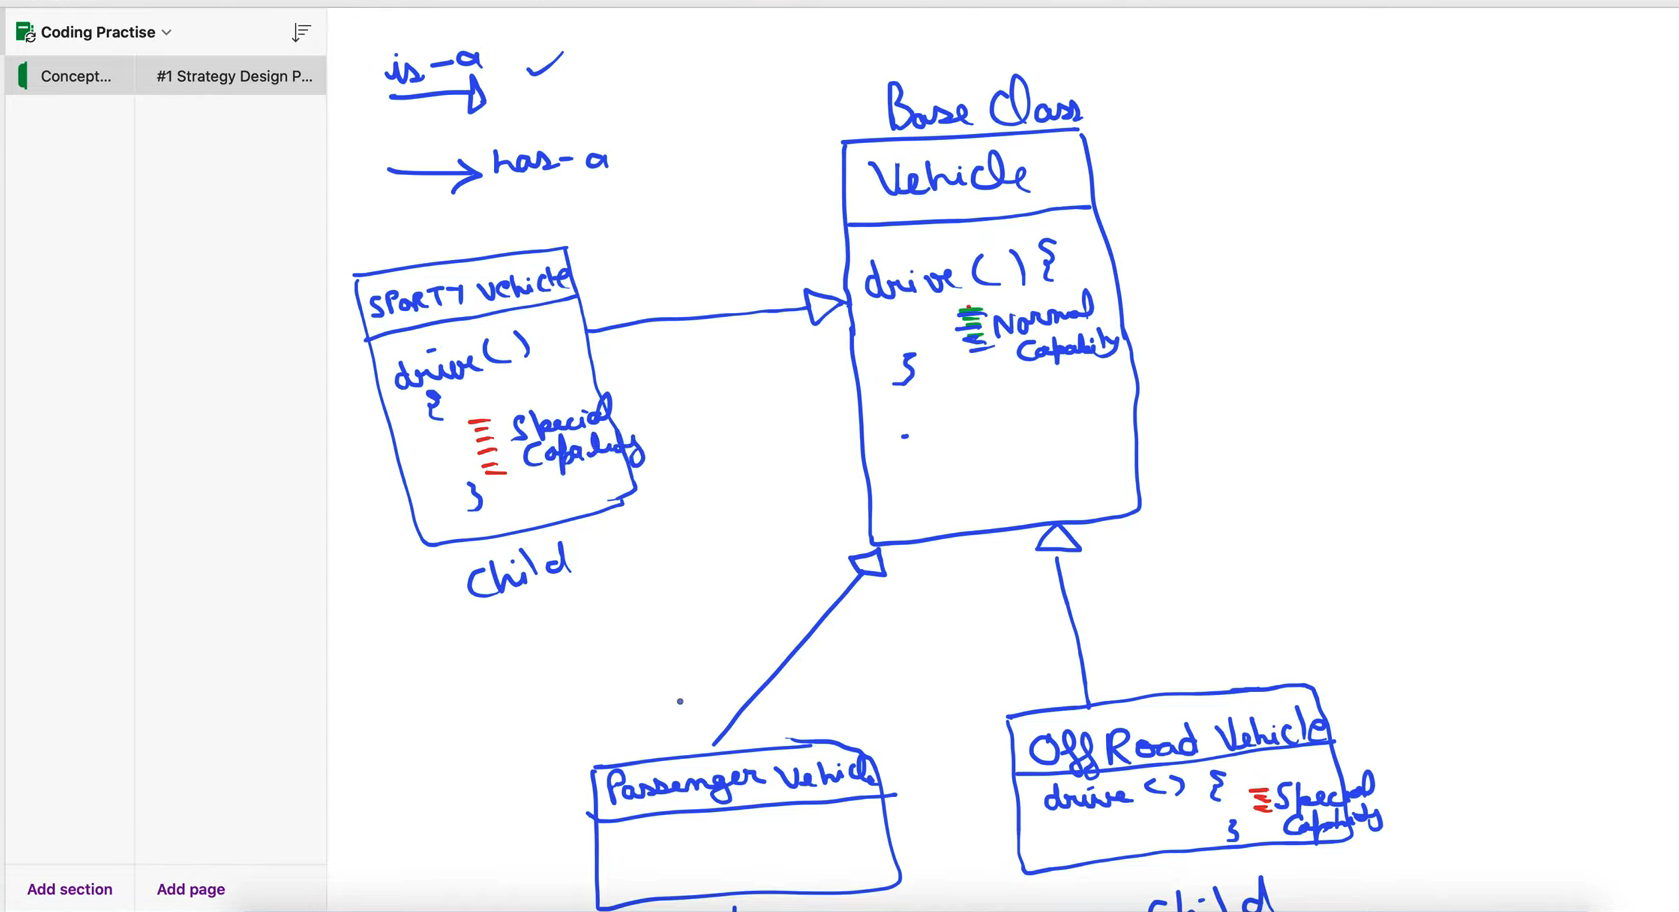 Coding Practise
Concept...
#1 Strategy Design P...
Add section
Add page
is-a
has-a
Base Class
Vehicle
drive () {
Normal
Capability
}
SPORTY Vehicle
drive ()
{
Special
Capability
}
Child
Passenger Vehicle
Off Road Vehicle
drive () {
Special
Capability
}
Child